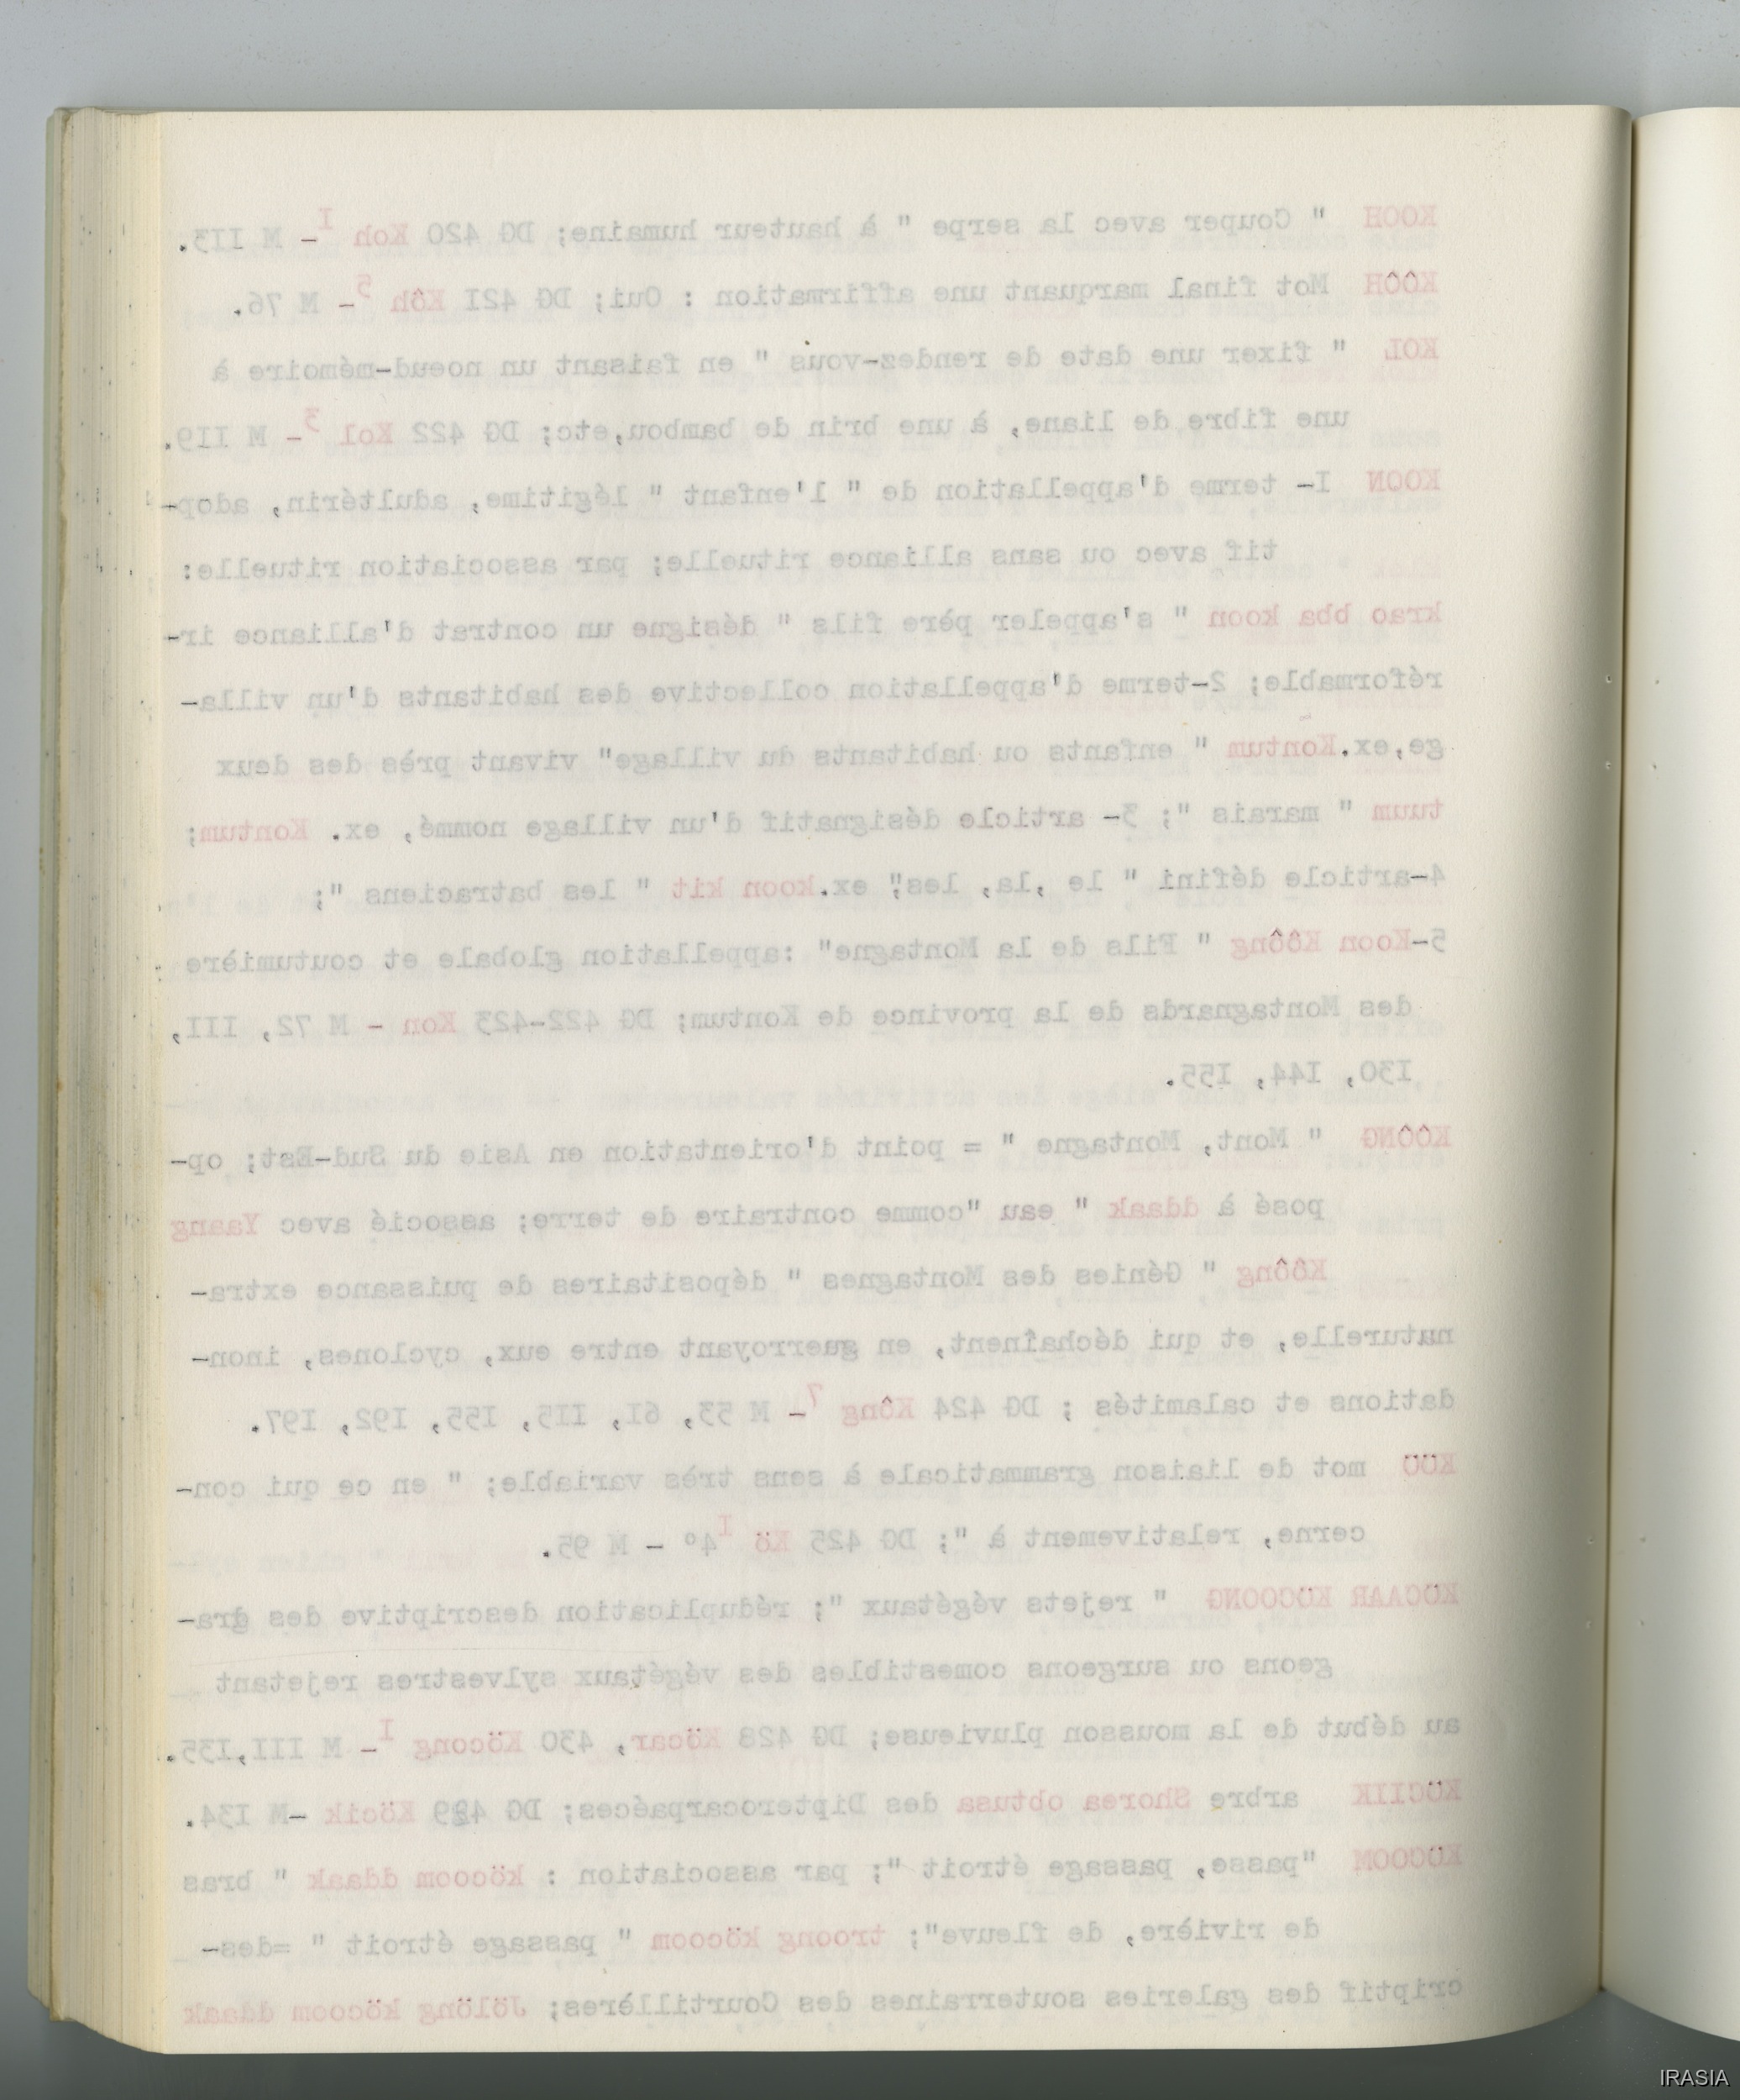 KOOH " Couper avec la serpe " à hauteur humaine; DG 420 Koh I- M II3.
KÔÔH Mot final marquant une affirmation : Oui; DG 42I Kôh 5- M 76.
KOL " fixer une date de rendez-vous " en faisant un noeud-mémoire à
une fibre de liane, à une brin de bambou,etc; DG 422 Kol 3- M II9.
KOON I- terme d'appellation de " l'enfant " légitime, adultérin, adop-
tif avec ou sans alliance rituelle; par association rituelle:
krao bba koon " s'appeler père fils " désigne un contrat d'alliance ir-
réformable; 2-terme d'appellation collective des habitants d'un villa-
ge,ex.Kontum " enfants ou habitants du village" vivant près des deux
tuum " marais "; 3- article désignatif d'un village nommé, ex. Kontum;
4-article défini " le ,la, les", ex.koon kit " les batraciens ";
5-Koon Kôông " Fils de la Montagne" :appellation globale et coutumière
des Montagnards de la province de Kontum; DG 422-423 Kon - M 72, III,
I30, I44, I55.
KÔÔNG " Mont, Montagne " = point d'orientation en Asie du Sud-Est; op-
posé à ddaak " eau "comme contraire de terre; associé avec Yaang
Kôông " Génies des Montagnes " dépositaires de puissance extra-
naturelle, et qui déchaînent, en guerroyant entre eux, cyclones, inon-
dations et calamités ; DG 424 Kông 7- M 53, 6I, II5, I55, I92, I97.
KÖÖ mot de liaison grammaticale à sens très variable; " en ce qui con-
cerne, relativement à "; DG 425 Kö I 4° - M 95.
KÖCAAR KÖCOONG " rejets végétaux "; réduplication descriptive des dra-
geons ou surgeons comestibles des végétaux sylvestres rejetant
au début de la mousson pluvieuse; DG 428 Köcar, 430 Köcong I- M III,I35.
KÖCIIK arbre Shorea obtusa des Dipterocarpaéces; DG 429 Köcik -M I34.
KÖCOOM "passe, passage étroit "; par association : köcoom ddaak " bras
de rivière, de fleuve"; troong köcoom " passage étroit " =des-
criptif des galeries souterraines des Courtillères; Jölöng köcoom ddaak
IRASIA